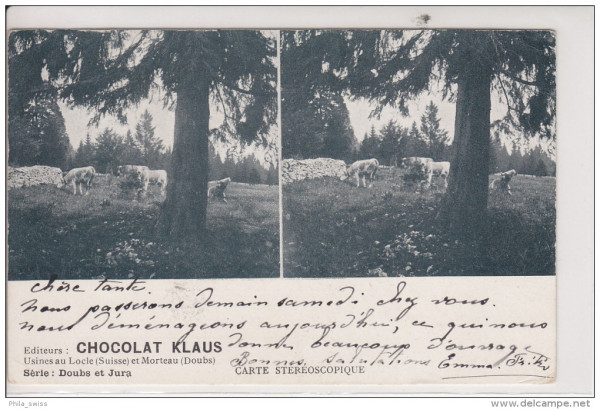 chère tante.
nous passerons demain samedi chez vous.
nous déménageons aujourd'hui, ce qui nous
Editeurs : CHOCOLAT KLAUS donne beaucoup d'ouvrage
Usines au Locle (Suisse) et Morteau (Doubs) Bonnes salutations Emma
Série : Doubs et Jura CARTE STÉRÉOSCOPIQUE
Phila_swiss
www.delcampe.net